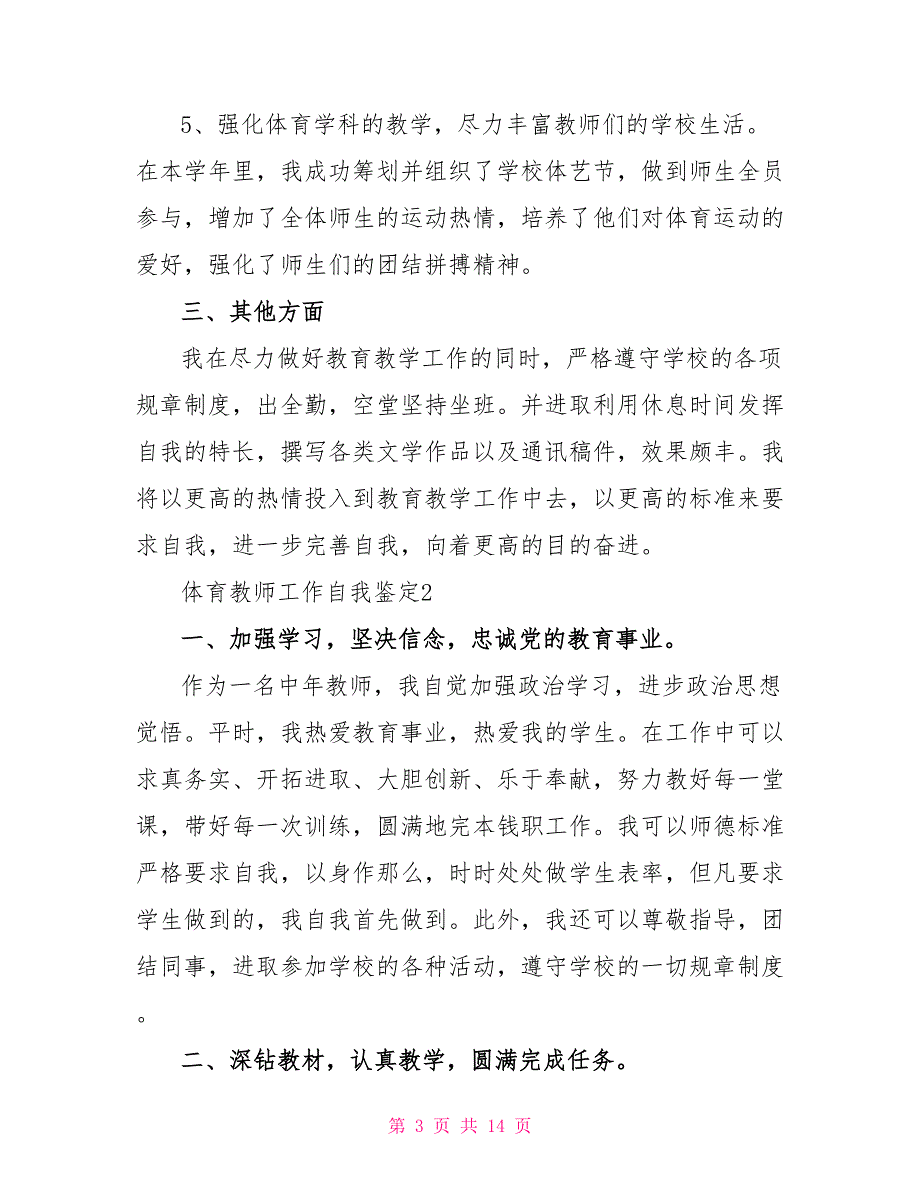 5、强化体育学科的教学，尽力丰富教师们的学校生活。
在本学年里，我成功筹划并组织了学校体艺节，做到师生全员
参与，增加了全体师生的运动热情，培养了他们对体育运动的
爱好，强化了师生们的团结拼搏精神。
三、其他方面
我在尽力做好教育教学工作的同时，严格遵守学校的各项
规章制度，出全勤，空堂坚持坐班。并进取利用休息时间发挥
自我的特长，撰写各类文学作品以及通讯稿件，效果颇丰。我
将以更高的热情投入到教育教学工作中去，以更高的标准来要
求自我，进一步完善自我，向着更高的目的奋进。
体育教师工作自我鉴定2
一、加强学习，坚决信念，忠诚党的教育事业。
作为一名中年教师，我自觉加强政治学习，进步政治思想
觉悟。平时，我热爱教育事业，热爱我的学生。在工作中可以
求真务实、开拓进取、大胆创新、乐于奉献，努力教好每一堂
课，带好每一次训练，圆满地完本钱职工作。我可以师德标准
严格要求自我，以身作那么，时时处处做学生表率，但凡要求
学生做到的，我自我首先做到。此外，我还可以尊敬指导，团
结同事，进取参加学校的各种活动，遵守学校的一切规章制度
。
二、深钻教材，认真教学，圆满完成任务。
第 3 页 共 14 页